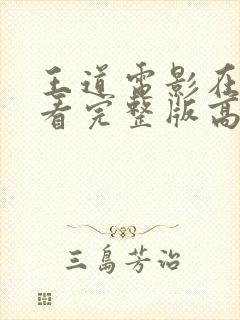 王道电影在
看完整版高
三岛芳治